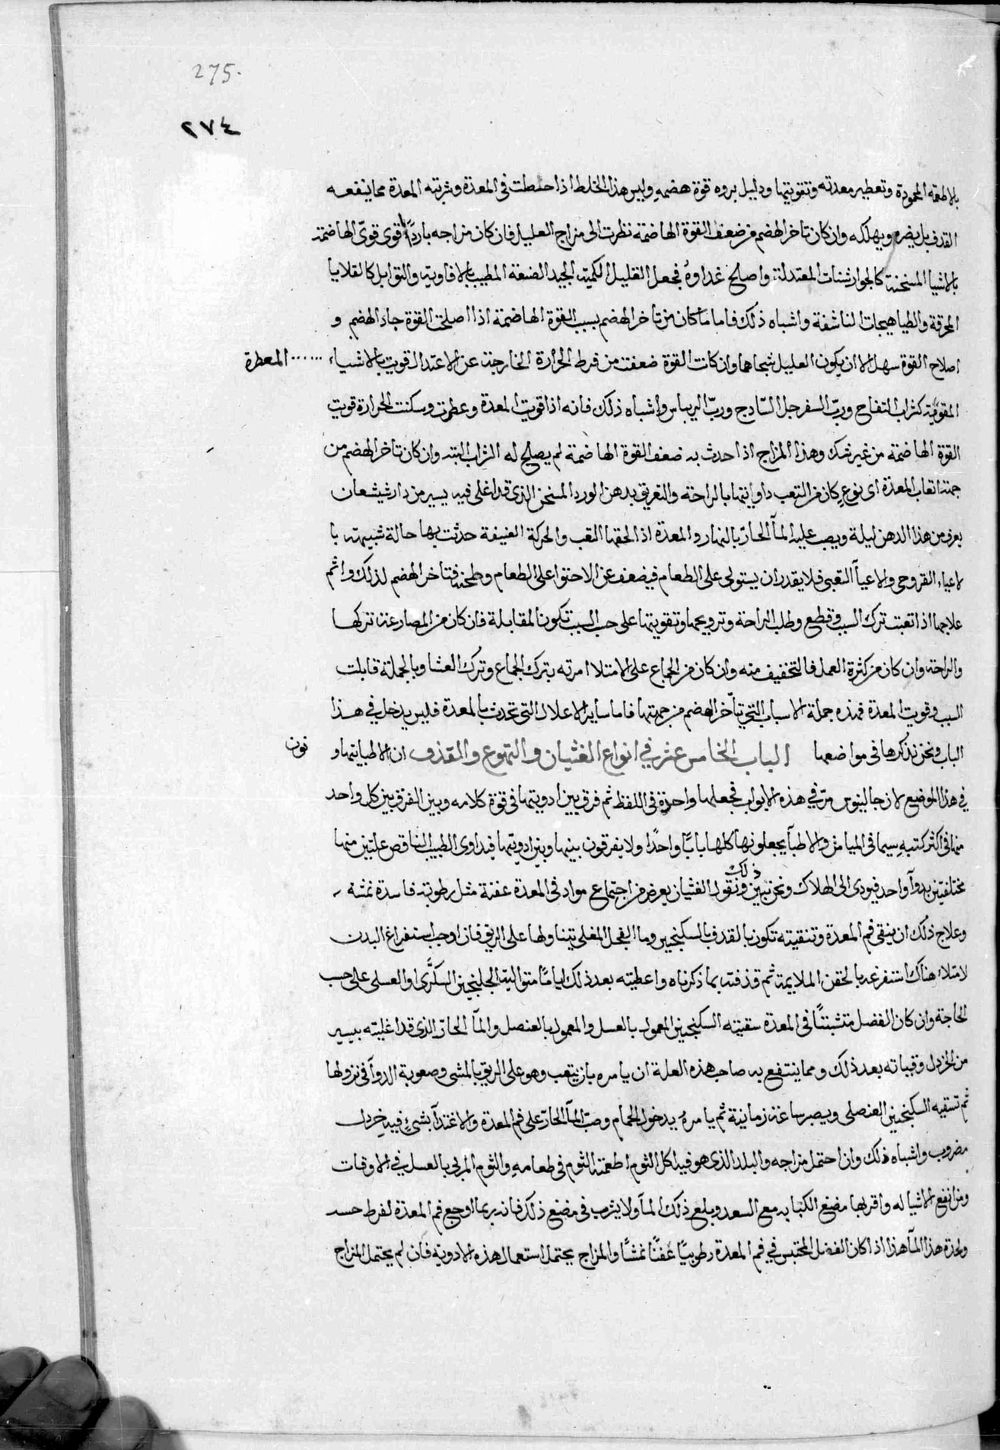 275.
٢٧٤
بالاطعمة المحمودة وتعطير معدته وتقويتها ودليل بروه قوة هضمه وليس هذا الخلط اذا حصلت في المعدة وشربته المعدة مما ينفعه
القذف بل يضره ويهلكه وان كان تاخر الهضم من ضعف القوة الهاضمة نظرت الى مزاج العليل فان كان مزاجه باردًا قوى قوى الهاضمة
بالاشيا المسخنة كالجوارشنات المعتدلة واصلح غداوه فجعل القليل الكمية الجيد الصنعة المطيب بالافاوية والتوابل كالقلايا
المحرقة والطباهيجات الناشفة واشباه ذلك فاما ما كان من تاخر الهضم بسبب القوة الهاضمة اذا اصلحت القوة جاد الهضم و
اصلاح القوة سهل الا ان يكون العليل شيخا هما وان كانت القوة ضعفت من فرط الحرارة الخارجة عن الاعتدال قويت بالاشياء ...... المعطرة
المقوية كشراب التفاح ورب السفرجل الساذج ورب الريباس واشباه ذلك فانه اذا قويت المعدة وعطرت وسكنت الحرارة قويت
القوة الهاضمة من غير شك وهذا المزاج اذا حدث به ضعف القوة الهاضمة لم يصلح له الشراب البتة وان كان تاخر الهضم من
جهة اتعاب المعدة اى نوع كان من التعب داوايتها بالراحة والتغريق بدهن الورد المسخن الذي قد اغلى فيه يسير من دارشيشعان
يعرض من هذا الدهن ليلة ويصب عليه المآ الحار بالنهار والمعدة اذا لحقها التعب والحركة العنيفة حدثت بها حالة شبيهة با
لاعياء القروحي والاعيآ التعبى فلا يقدر ان يستولى على الطعام فيضعف عن الاحتوا على الطعام وطحنه فتاخر الهضم لذلك واثم
علاجها اذا تعبت ترك السبب وقطع وطلب الراحة وترويحها وتقويتها على حسب السبب تكون المقابلة فان كان من المصارعة تركها
والراحة وان كان من كثرة العمل فالتخفيف منه وان كان من الجماع على الامتلا امرته بترك الجماع وترك العشا وبالجملة قابلت
السبب وقويت المعدة فهذه جملة الاسباب التي تآخر الهضم من جهتها فاما ساير الاعلال التي تحدث بالمعدة فليس يدخل في هذا
الباب ونحن نذكرها في مواضعها الباب الخامس عشر في انواع الغثيان والتهوع والقذف ان الاطبا يتهاو نون
في هذا الموضع لان جالينوس مر في هذه الابواب فجعلها واحدة في اللفظ ثم فرق بين ادويتها في قوة كلامه وبين الفرق بين كل واحد
منها في اكثر كتبه سيما في الميامن والاطبآ يجعلونها كلها بابًا واحدًا ولا يفرقون بينها وبين ادويتها فيداوى الطبيب الناقص علتين منها
مختلفتين بدوآ واحد فيودى الى الهلاك ونحن نبين ذلك ونقول الغثيان يعرض من اجتماع مواد في المعدة عفنة مثل رطوبة فاسدة نمشة
وعلاج ذلك ان ينقى فم المعدة وتنقيته تكون بالقذف بالسكنجبين وما الفجل المغلى يتناولها على الريق فان اوجب استفراغ البدن
لامتلاء هناك استفرغه بالحقن الملايمة ثم قذفته بما ذكرناه واعطيته بعد ذلك اياما متوالية الجلنجبين السكرى او العسلى على حسب
الحاجة وان كان الفضل متشبثًا في المعدة سقيته السكنجبين المعمول بالعسل والمعمول بالعنصل والمآ الحار الذي قد اغليته بيسير
من الخردل وقيياته بعد ذلك ومما ينتفع به صاحب هذه العلة ان يامره بان يتعب وهو على الريق بالمشى وصعوبة الدوآ في نزولها
ثم تسقيه السكنجبين العنصلى ويصبر ساعة زمانية ثم يامره بدخول الحمام وصب المآ الحار على فم المعدة والاغتذآ بشئ فيه خردل
مضروب واشباه ذلك وان احتمل مزاجه والبلد الذي هو فيه اكل الثوم اطعمته الثوم في طعامه والثوم المربى بالعسل في الاوقات
ومن انفع الاشيا له واقربها مضغ الكبابه مع السعد ويبلع ذلك المآ ولا يشرب في مضغ ذلك فانه ربما اوجع فم المعدة لفرط حسه
ولحدة هذا المآ هذا اذا كان الفضل المحتبس في فم المعدة رطوبيًا عفنًا نمشًا والمزاج يحتمل استعمال هذه الادوية فان لم يحتمل المزاج